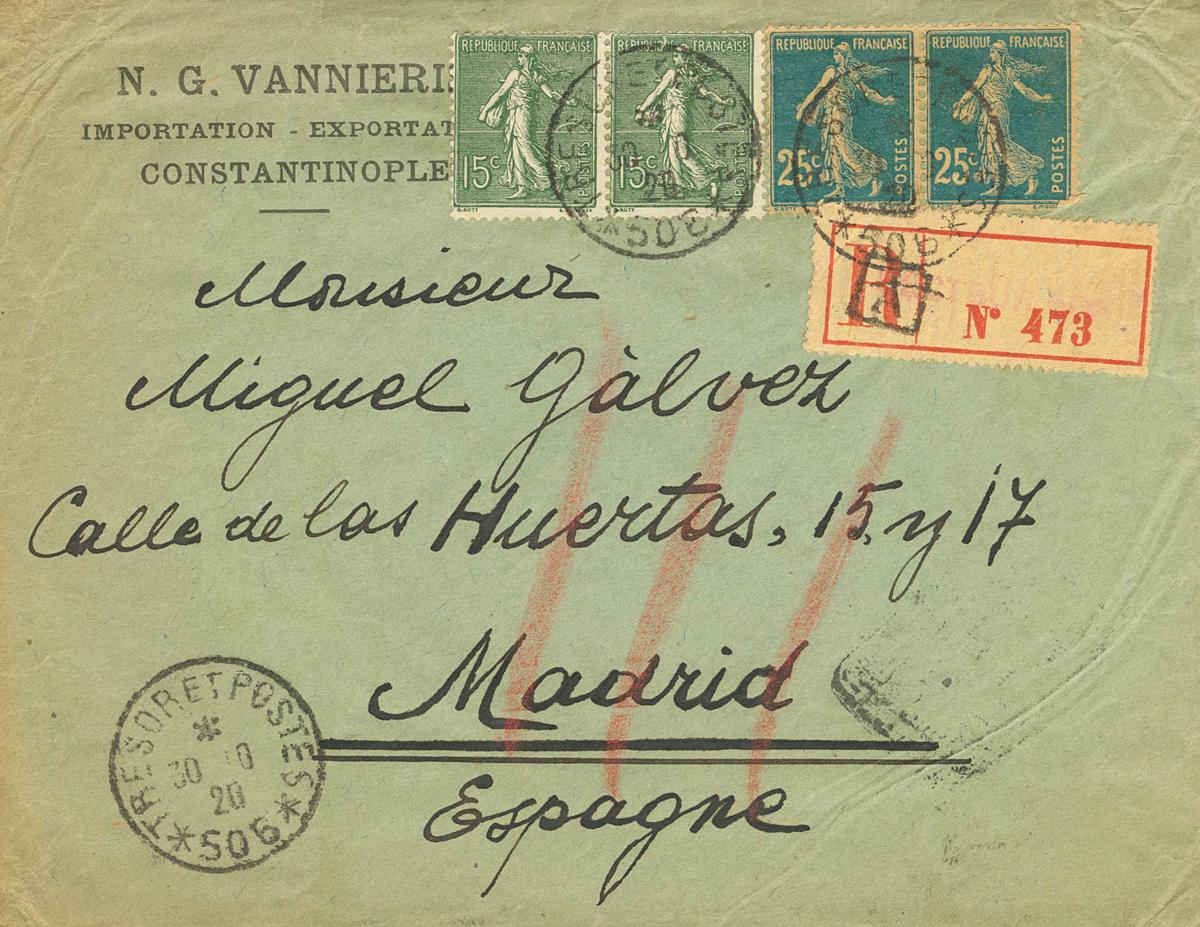 N. G. VANNIERI
IMPORTATION - EXPORTAT
CONSTANTINOPLE
REPUBLIQUE FRANÇAISE
15c
POSTES
REPUBLIQUE FRANÇAISE
15c
POSTES
REPUBLIQUE FRANÇAISE
25c
POSTES
REPUBLIQUE FRANÇAISE
25c
POSTES
*506*
*506*
R
A
N° 473
Monsieur
Miguel Gàlvez
Calle de las Huertas, 15, y 17
Madrid
Espagne
TRESOR ET POSTES
*
30 10
20
*506*